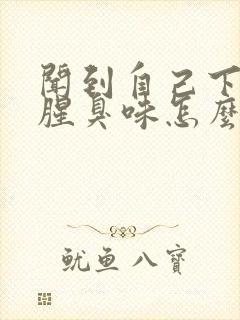 聞到自己下
腥臭味怎麼
魷魚八寶